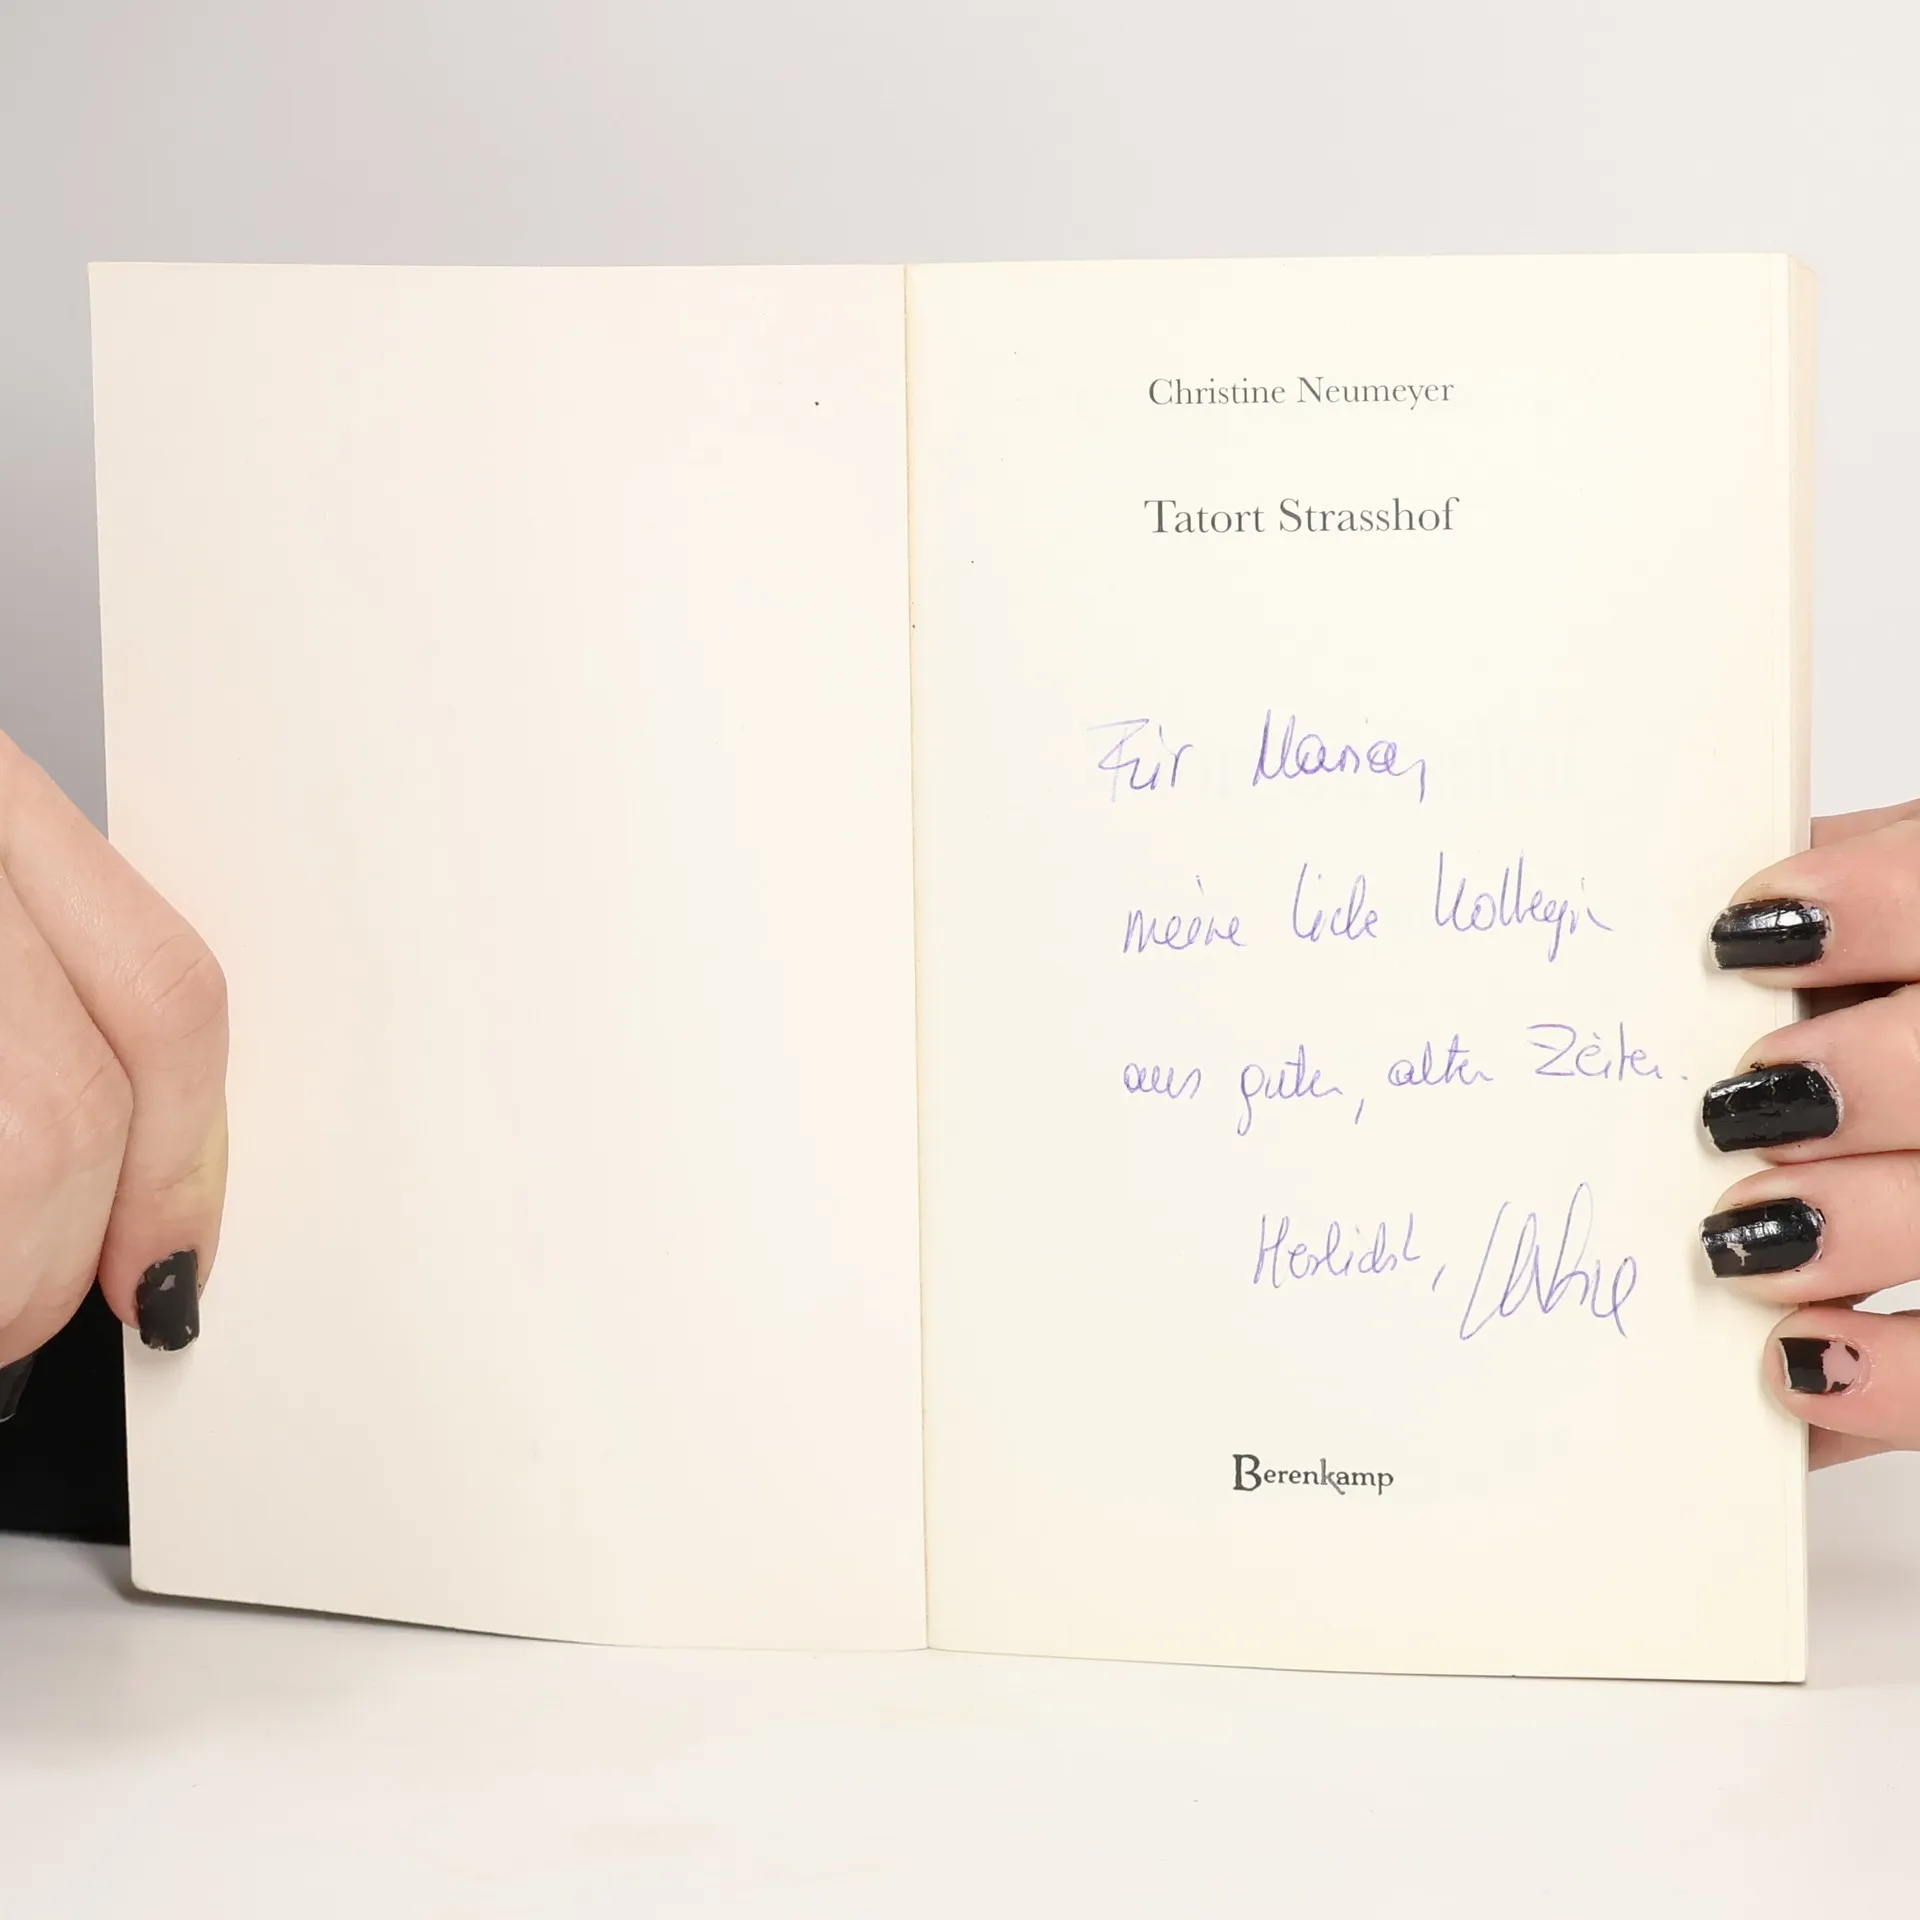 Christine Neumeyer
Tatort Strasshof
Für Maria,
meine liebe Kollegin
aus guten, alten Zeiten.
Herzlichst,
Berenkamp